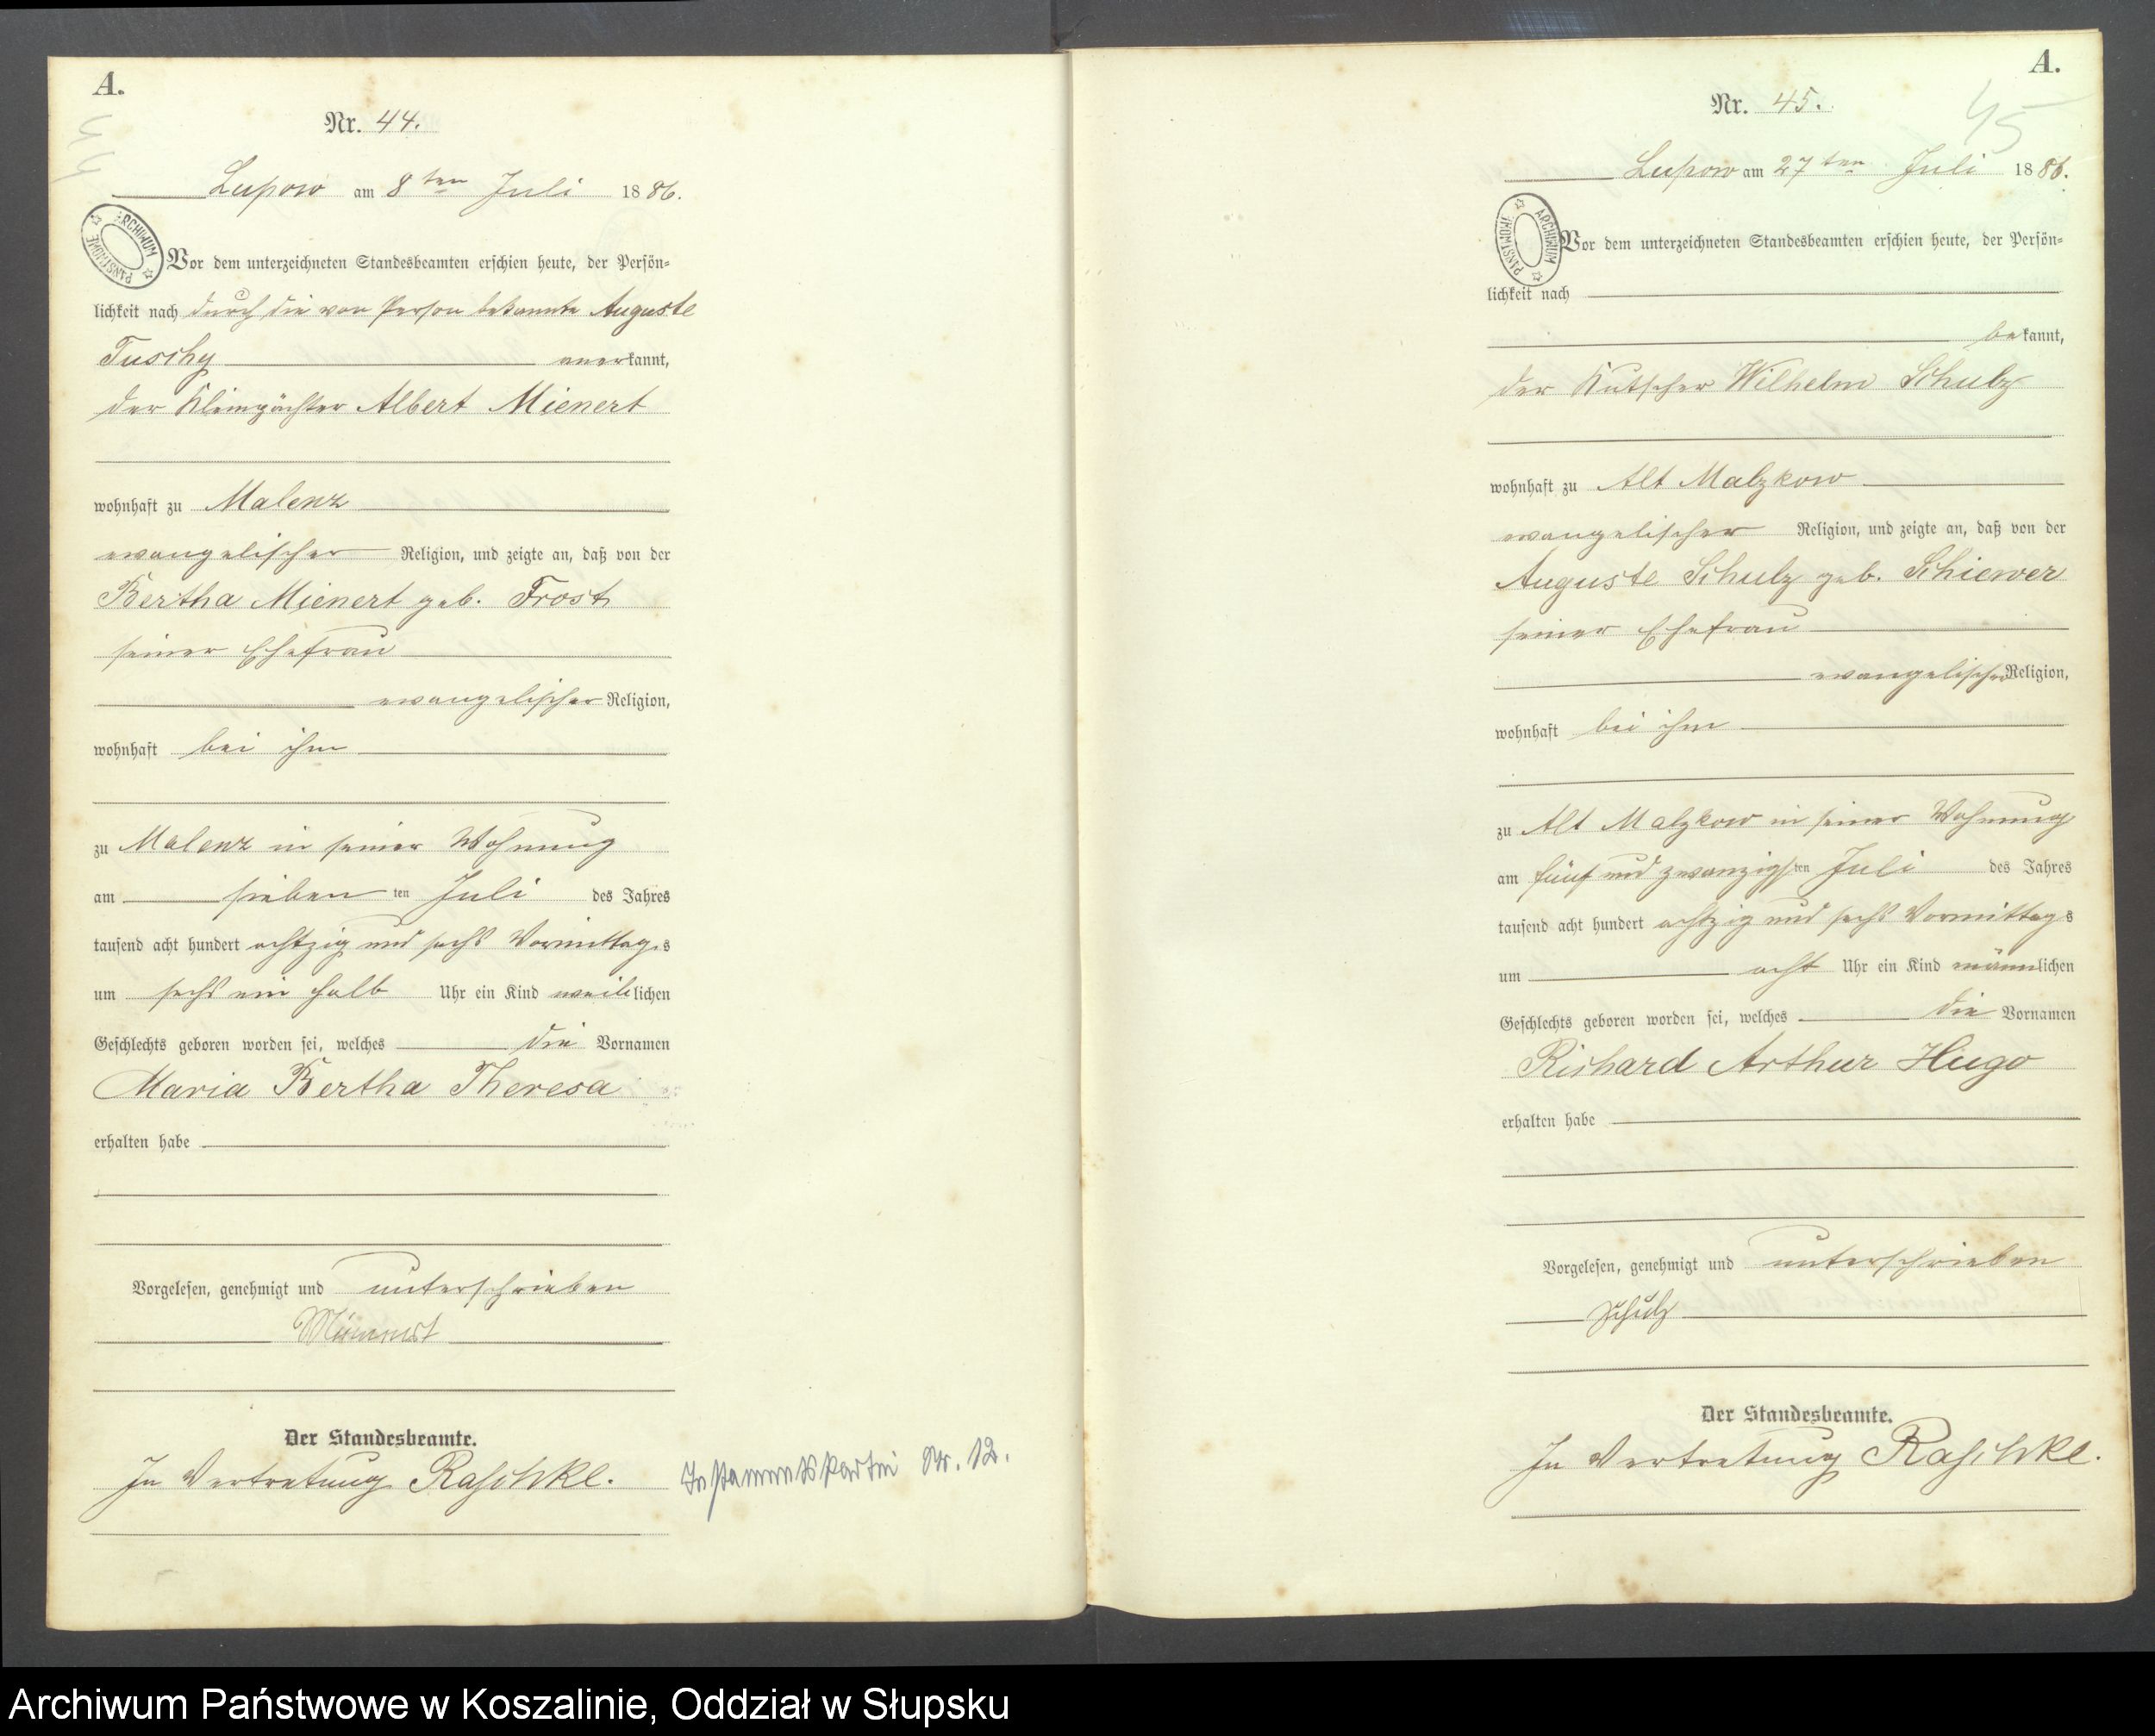 A.
44
Nr. 44.
Lupow am 8ten Juli 1886.
ARCHIWUM PAŃSTWOWE
Vor dem unterzeichneten Standesbeamten erschien heute, der Persön-
lichkeit nach durch die von Person bekannte Auguste
Tuschy anerkannt,
der Kleinpächter Albert Mienert
wohnhaft zu Malenz
evangelischer Religion, und zeigte an, daß von der
Bertha Mienert geb. Frost
seiner Ehefrau
evangelischer Religion,
wohnhaft bei ihm
zu Malenz in seiner Wohnung
am sieben ten Juli des Jahres
tausend acht hundert achtzig und sechs Vormittags
um sechs ein halb Uhr ein Kind weiblichen
Geschlechts geboren worden sei, welches die Vornamen
Maria Bertha Theresa
erhalten habe
Vorgelesen, genehmigt und unterschrieben
Mienert
Der Standesbeamte.
In Vertretung Raschke.
Nr. 12.
A.
45
Nr. 45.
Lupow am 27ten Juli 1886.
ARCHIWUM PAŃSTWOWE
Vor dem unterzeichneten Standesbeamten erschien heute, der Persön-
lichkeit nach
bekannt,
der Kutscher Wilhelm Schulz
wohnhaft zu Alt Malzkow
evangelischer Religion, und zeigte an, daß von der
Auguste Schulz geb. Schiewer
seiner Ehefrau
evangelischer Religion,
wohnhaft bei ihm
zu Alt Malzkow in seiner Wohnung
am fünf und zwanzigsten Juli des Jahres
tausend acht hundert achtzig und sechs Vormittags
um acht Uhr ein Kind männlichen
Geschlechts geboren worden sei, welches die Vornamen
Richard Arthur Hugo
erhalten habe
Vorgelesen, genehmigt und unterschrieben
Schulz
Der Standesbeamte.
In Vertretung Raschke.
Archiwum Państwowe w Koszalinie, Oddział w Słupsku